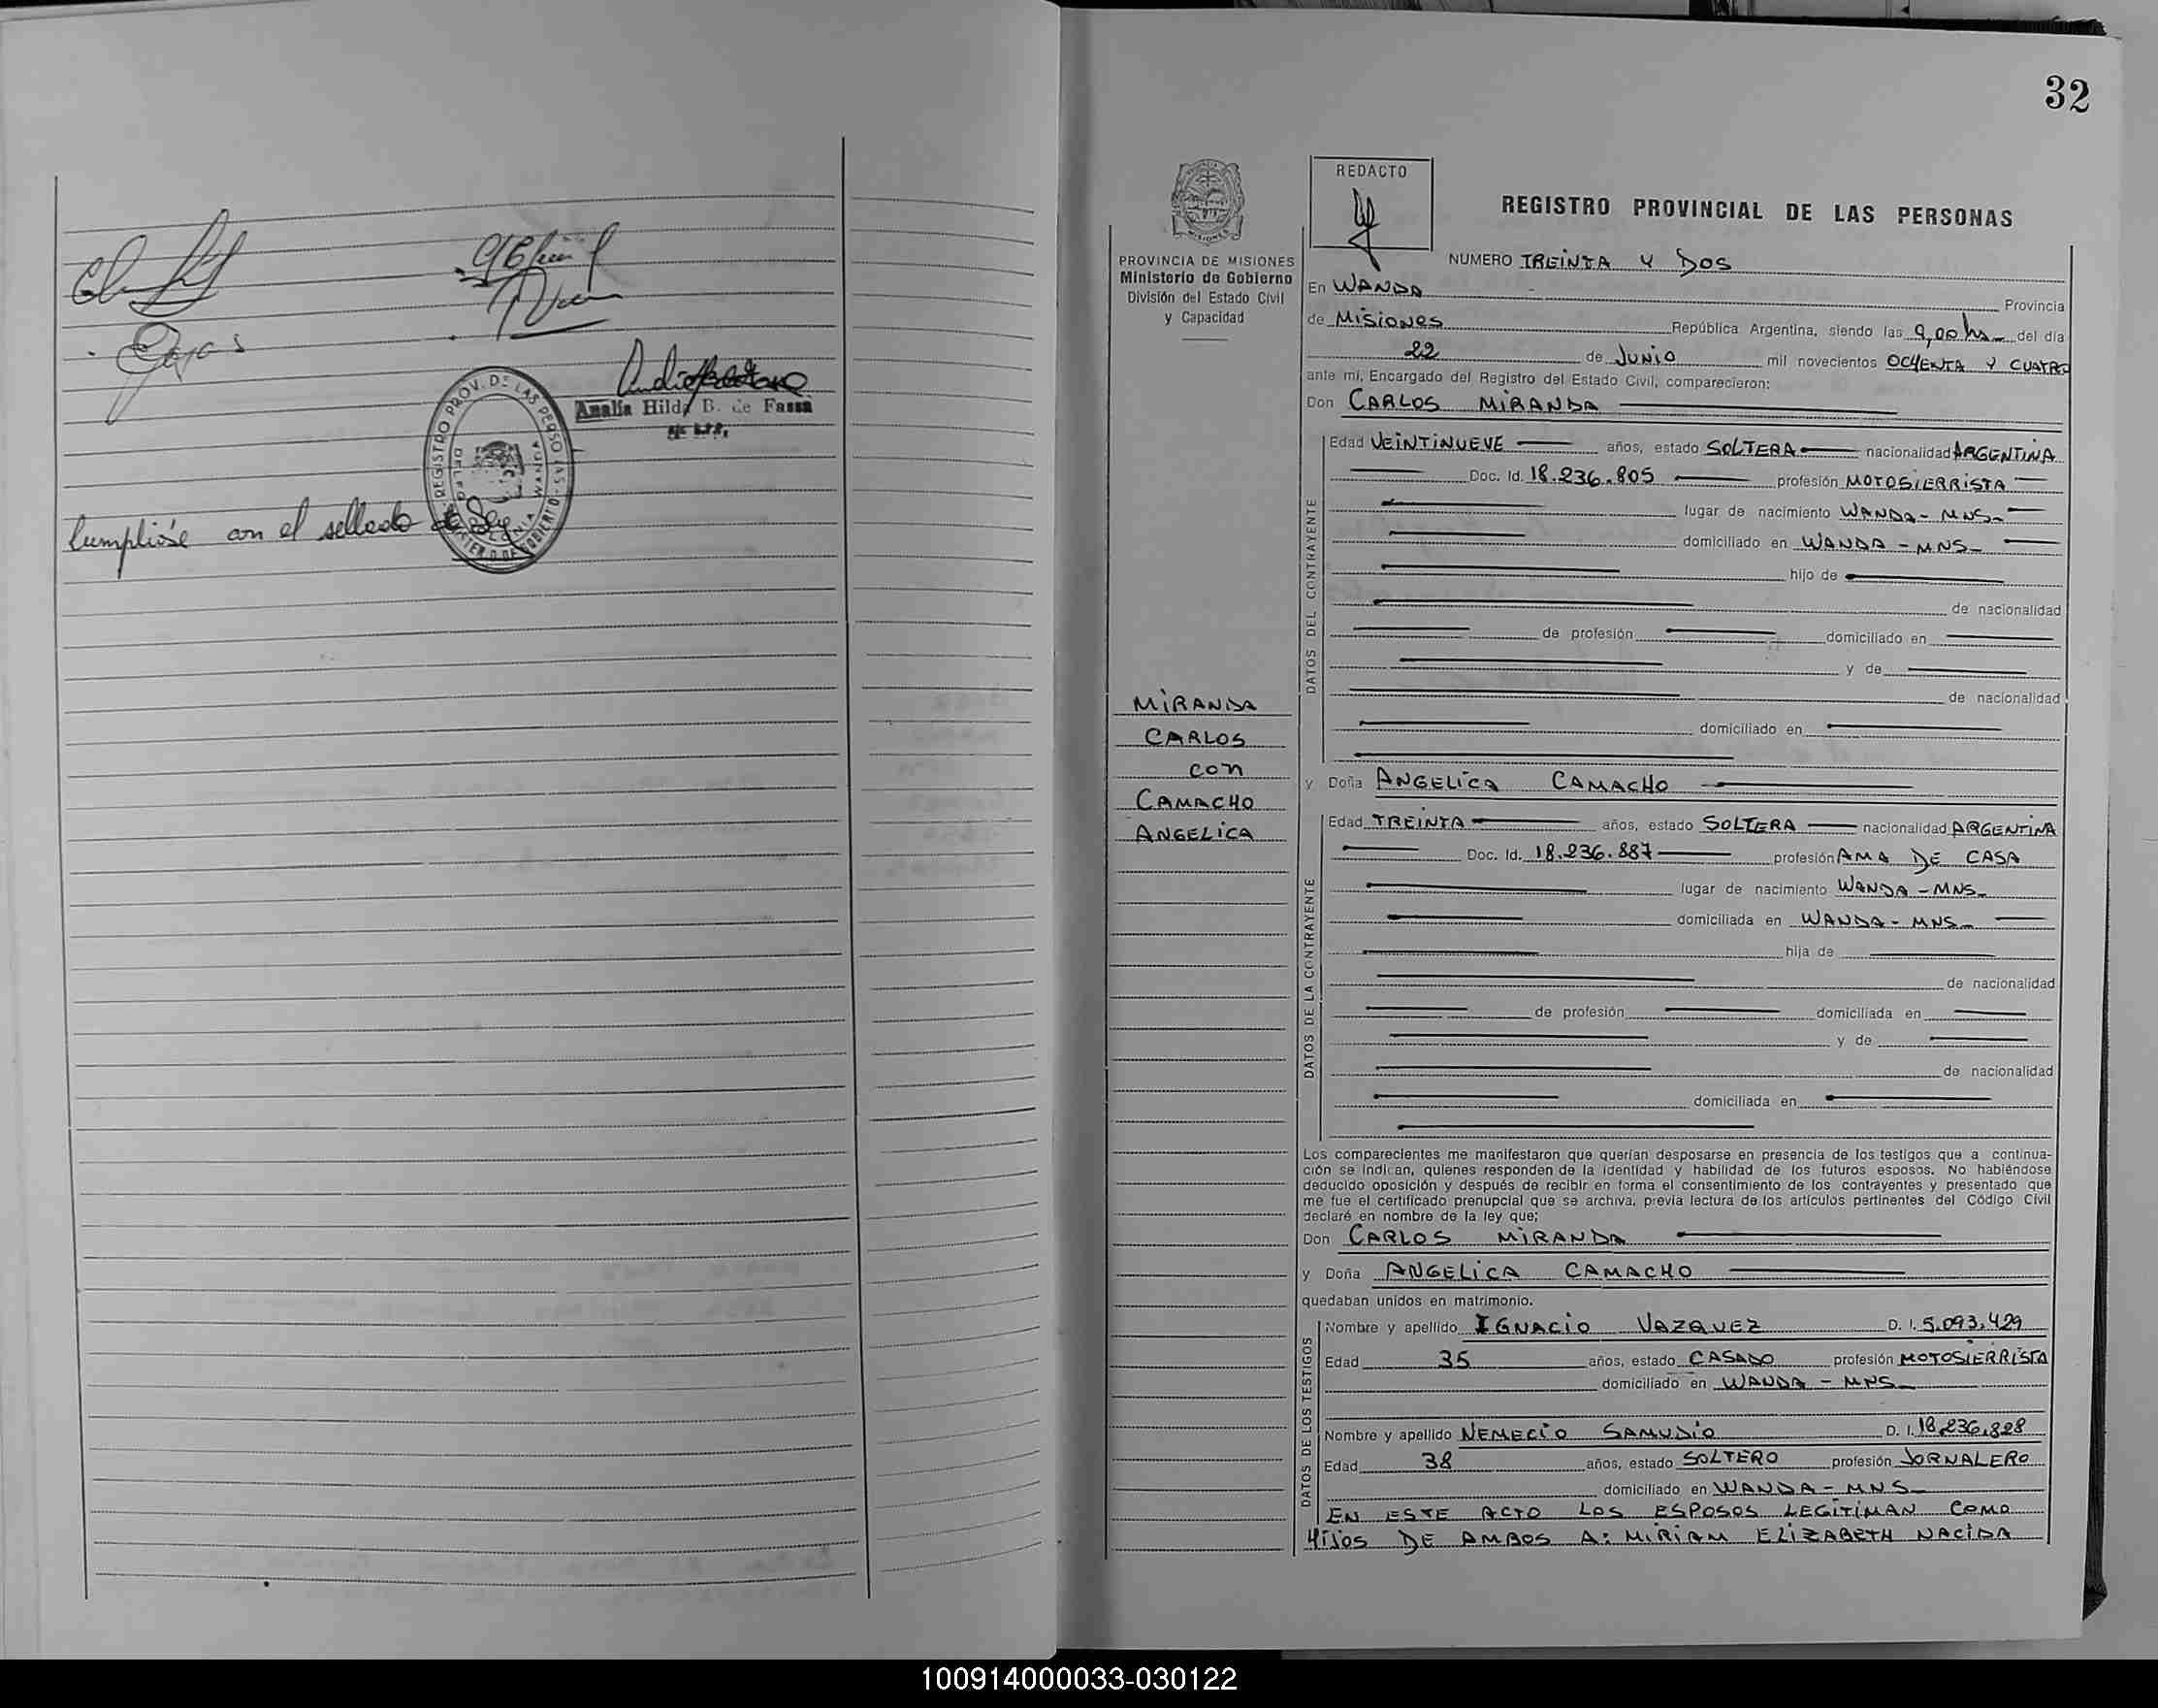 Analía Hilda B. de Fassa
REGISTRO PROV. DE LAS PERSONAS
Cumplióse con el sellado de Ley
32
REDACTO
REGISTRO PROVINCIAL DE LAS PERSONAS
PROVINCIA DE MISIONES
Ministerio de Gobierno
División del Estado Civil
y Capacidad
NUMERO TREINTA Y DOS
En WANDA Provincia
de MISIONES República Argentina, siendo las 9,00 hs del día
22 de JUNIO mil novecientos OCHENTA Y CUATRO
ante mí, Encargado del Registro del Estado Civil, comparecieron:
Don CARLOS MIRANDA
DATOS DEL CONTRAYENTE
Edad VEINTINUEVE años, estado SOLTERA nacionalidad ARGENTINA
Doc. Id. 18.236.805 profesión MOTOSIERRISTA
lugar de nacimiento WANDA - MNS-
domiciliado en WANDA - MNS-
hijo de
de nacionalidad
de profesión domiciliado en
y de
de nacionalidad
domiciliado en
MIRANDA
CARLOS
CON
CAMACHO
ANGELICA
y Doña ANGELICA CAMACHO
DATOS DE LA CONTRAYENTE
Edad TREINTA años, estado SOLTERA nacionalidad ARGENTINA
Doc. Id. 18.236.887 profesión AMA DE CASA
lugar de nacimiento WANDA - MNS-
domiciliada en WANDA - MNS-
hija de
de nacionalidad
de profesión domiciliada en
y de
de nacionalidad
domiciliada en
Los comparecientes me manifestaron que querían desposarse en presencia de los testigos que a continua-
ción se indican, quienes responden de la identidad y habilidad de los futuros esposos. No habiéndose
deducido oposición y después de recibir en forma el consentimiento de los contrayentes y presentado que
me fue el certificado prenupcial que se archiva, previa lectura de los artículos pertinentes del Código Civil
declaré en nombre de la ley que;
Don CARLOS MIRANDA
y Doña ANGELICA CAMACHO
quedaban unidos en matrimonio.
DATOS DE LOS TESTIGOS
Nombre y apellido IGNACIO VAZQUEZ D. I. 5.093.429
Edad 35 años, estado CASADO profesión MOTOSIERRISTA
domiciliado en WANDA - MNS-
Nombre y apellido NEMECIO SAMUDIO D. I. 18.236.828
Edad 38 años, estado SOLTERO profesión JORNALERO
domiciliado en WANDA - MNS-
EN ESTE ACTO LOS ESPOSOS LEGITIMAN COMO
HIJOS DE AMBOS A: MIRIAM ELIZABETH NACIDA
100914000033-030122